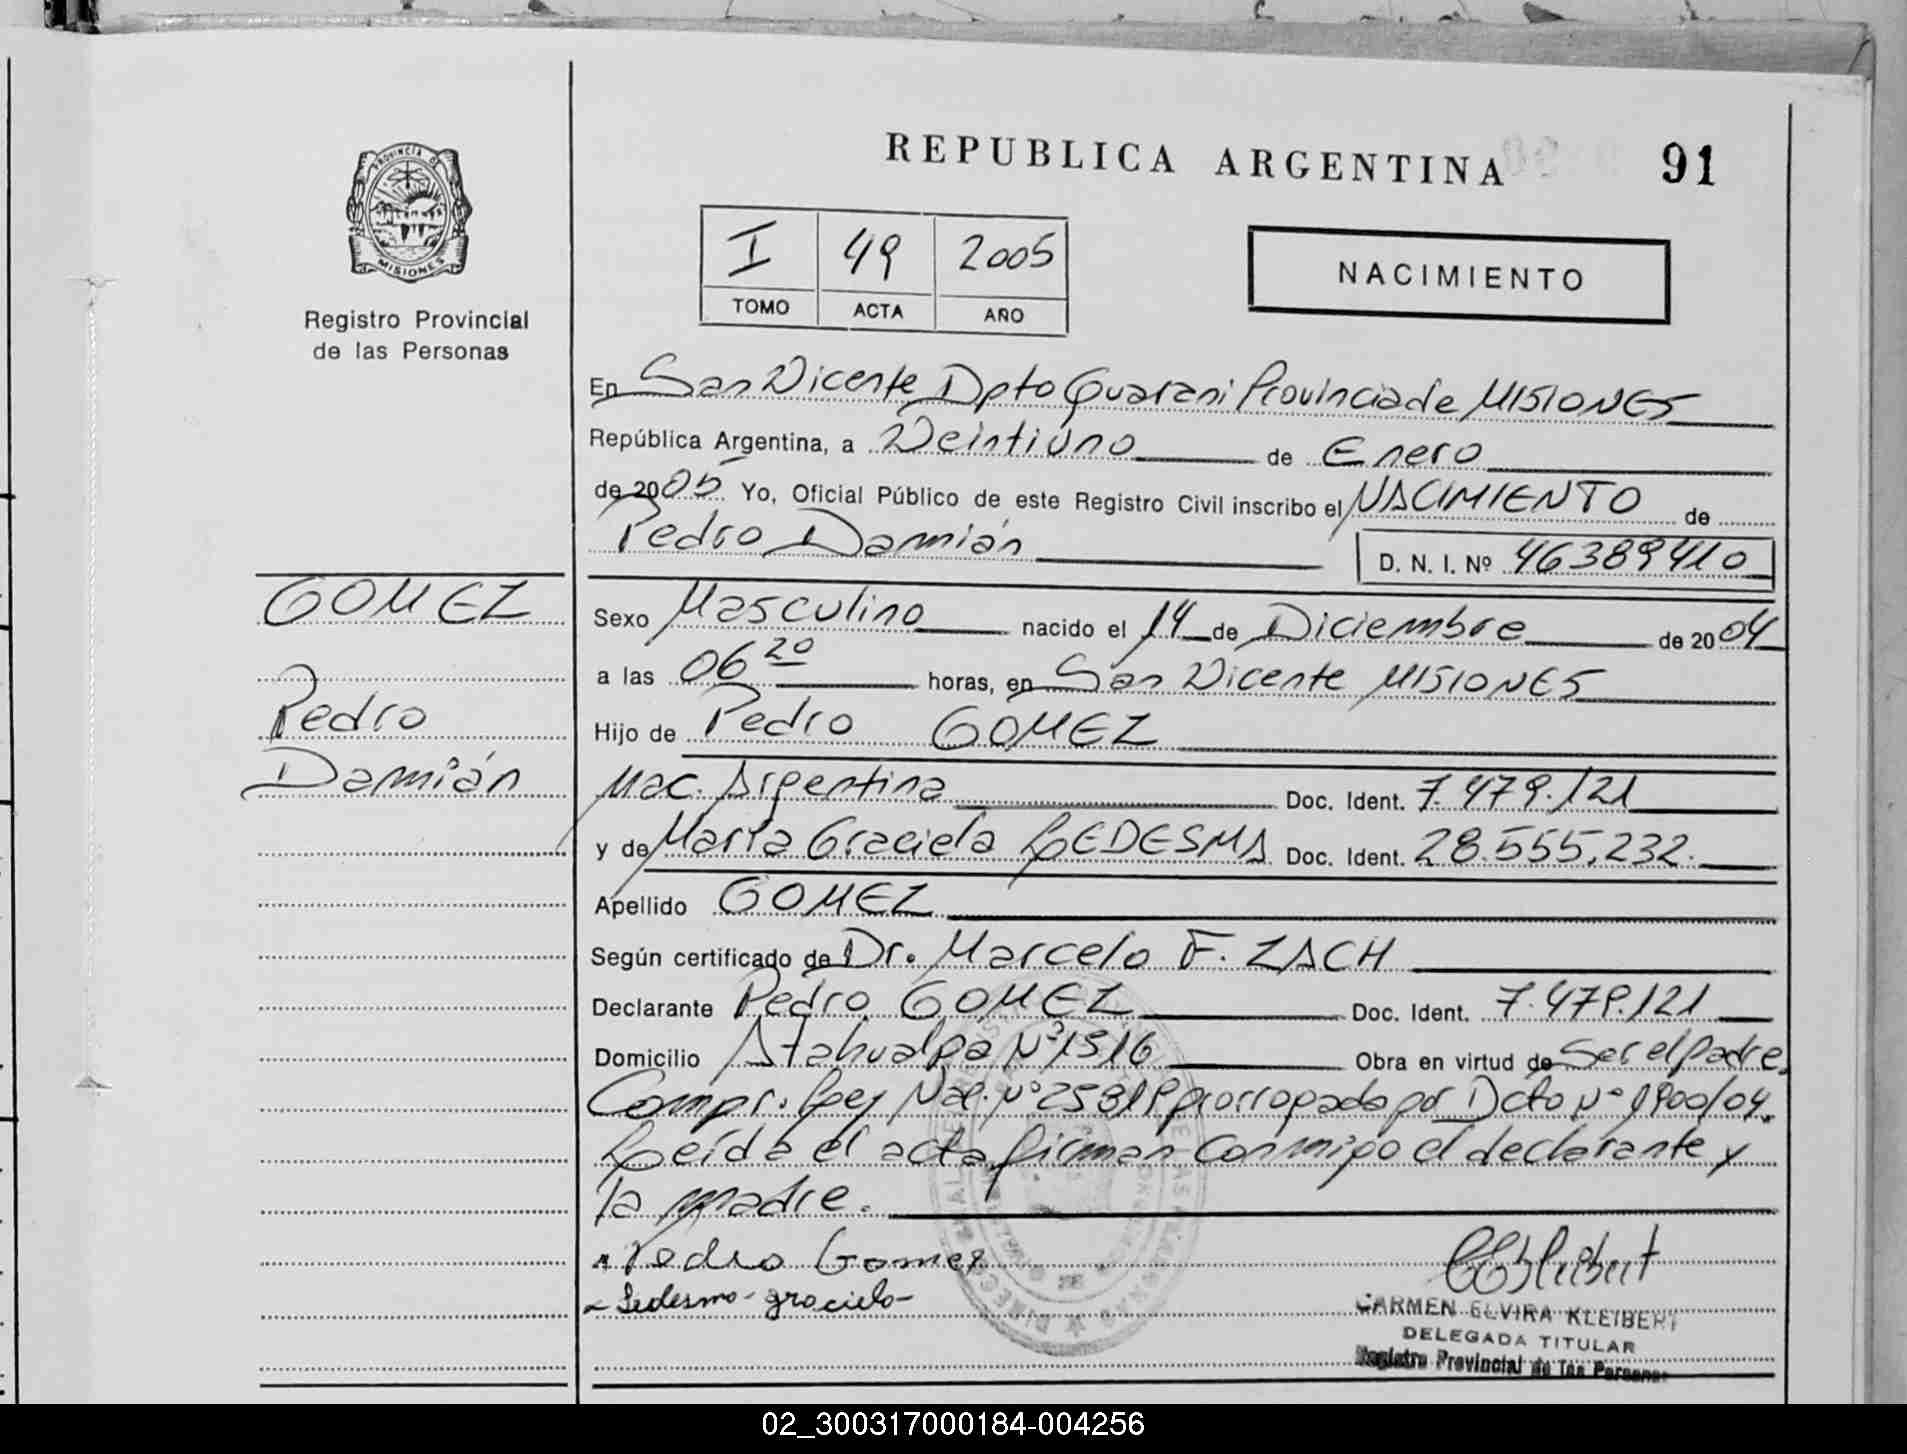 PROVINCIA DE
MISIONES
Registro Provincial
de las Personas
GOMEZ
Pedro
Damián
REPUBLICA ARGENTINA
91
I 49 2005
TOMO ACTA AÑO
NACIMIENTO
En San Vicente Dpto Guarani Provincia de MISIONES
República Argentina, a Veintiuno de Enero
de 2005 Yo, Oficial Público de este Registro Civil inscribo el NACIMIENTO de
Pedro Damián D. N. I. Nº 46389410
Sexo Masculino nacido el 14 de Diciembre de 2004
a las 06 20 horas, en San Vicente MISIONES
Hijo de Pedro GOMEZ
Nac. Argentina Doc. Ident. 7.479.121
y de María Graciela LEDESMA Doc. Ident. 28.555.232.
Apellido GOMEZ
Según certificado de Dr. Marcelo F. ZACH
Declarante Pedro GOMEZ Doc. Ident. 7.479.121
Domicilio Atahualpa Nº 1516 Obra en virtud de Ser el padre.
Compr. Ley Nac. Nº 25819 prorrogada por Dcto Nº 1900/04.
Leída el acta firman conmigo el declarante y
la madre.
Pedro Gomez
Ledesma graciela
CARMEN ELVIRA KLEIBERT
DELEGADA TITULAR
Registro Provincial de las Personas
02_300317000184-004256